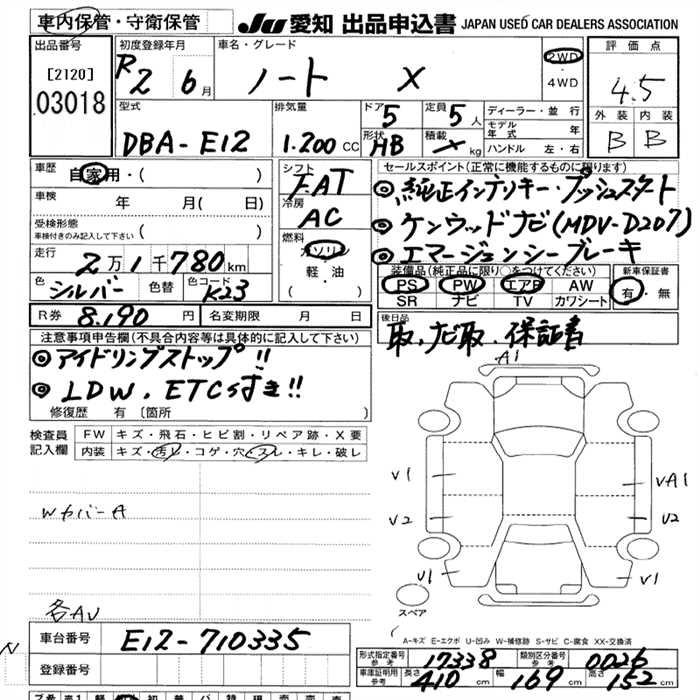 車内保管・守衛保管
JU 愛知 出品申込書 JAPAN USED CAR DEALERS ASSOCIATION
出品番号
[2120]
03018
初度登録年月
R2 6月
車名・グレード
ノート X
2WD
・
4WD
評価点
4.5
外装 内装
B B
型式
DBA-E12
排気量
1.200 CC
ドア
5
定員
5人
形状
HB
積載
× kg
ディーラー・並行
モデル年式 年
ハンドル 左・右
車歴
自家用・( )
車検
年 月( 日)
受検形態
車検付きのみ記入して下さい ( )
走行
2万1千780km
色
シルバー
色替
色コード
K23
シフト
FAT
冷房
AC
燃料
ガソリン
軽・油
( )
セールスポイント(正常に機能するものに限ります)
◎純正インテリキー・プッシュスタート
◎ケンウッドナビ(MDV-D207)
◎エマージェンシーブレーキ
装備品(純正品に限り○をつけてください)
PS PW エアB AW
SR ナビ TV カワシート
新車保証書
有・無
R券 8.190円
名変期限 月 日
後日品
取、ナビ取、保証書
注意事項申告欄(不具合内容等は具体的に記入して下さい)
◎アイドリングストップ!!
◎LDW、ETCつき!!
修復歴 有〔箇所 〕
検査員
記入欄
FW キズ・飛石・ヒビ割・リペア跡・X要
内装 キズ・汚レ・コゲ・穴・スレ・キレ・破レ
Wカバー A
各AU
A1
V1
V2
U1
UA1
U2
V1
スペア
A-キズ E-エクボ U-凹み W-補修跡 S-サビ C-腐食 XX-交換済
車台番号
E12-710335
登録番号
N
形式指定番号
参考
17338
類別区分番号
参考
0026
車庫証明用
参考
長さ
410cm
幅
169cm
高さ
152cm